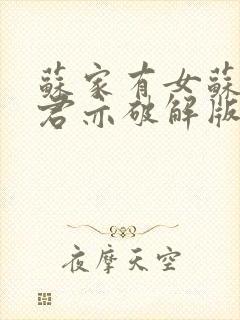 蘇家有女蘇
君亦破解版
夜摩天空